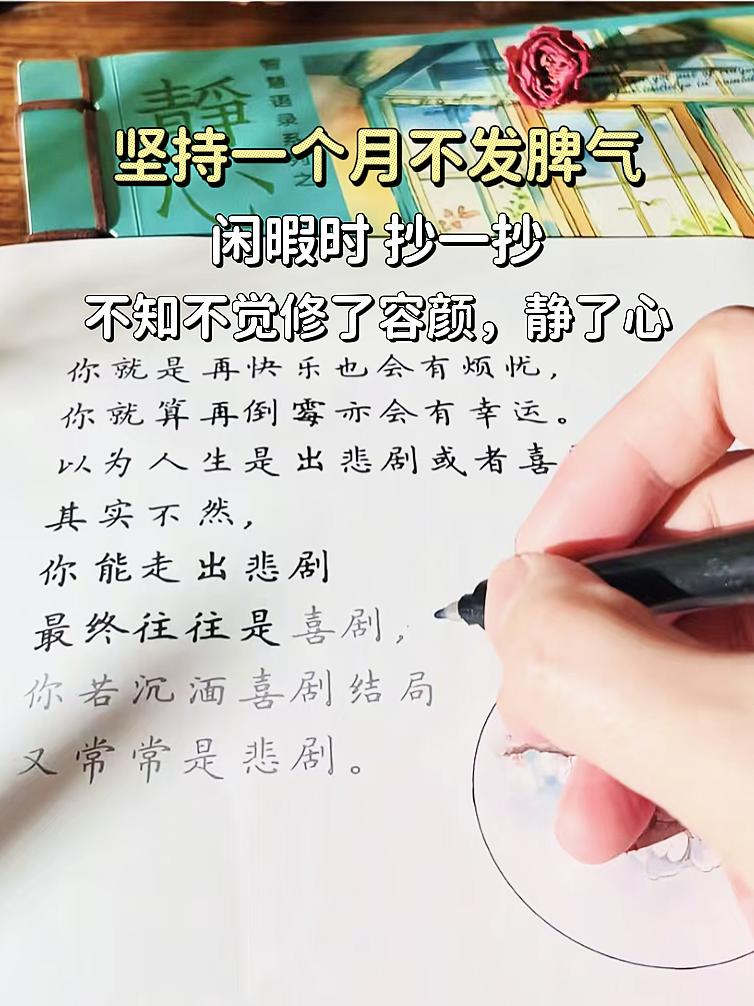 静心
智慧语录系列之
坚持一个月不发脾气
闲暇时 抄一抄
不知不觉修了容颜，静了心
你就是再快乐也会有烦忧，
你就算再倒霉亦会有幸运。
以为人生是出悲剧或者喜
其实不然，
你能走出悲剧
最终往往是喜剧，
你若沉湎喜剧结局
又常常是悲剧。